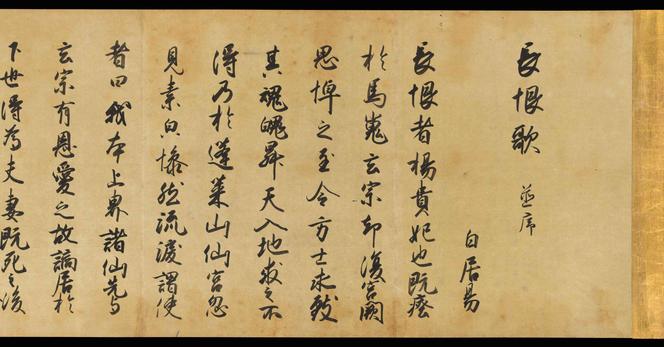 長恨歌 並序
白居易
長恨者楊貴妃也既瘞
於馬嵬玄宗却復宮闕
思悼之至令方士求致
其魂魄昇天入地求之不
得乃於蓬萊山仙宮忽
見素皃慘然流涙謂使
者曰我本上界諸仙先与
玄宗有恩愛之故謫居於
下世得為夫妻既死之後